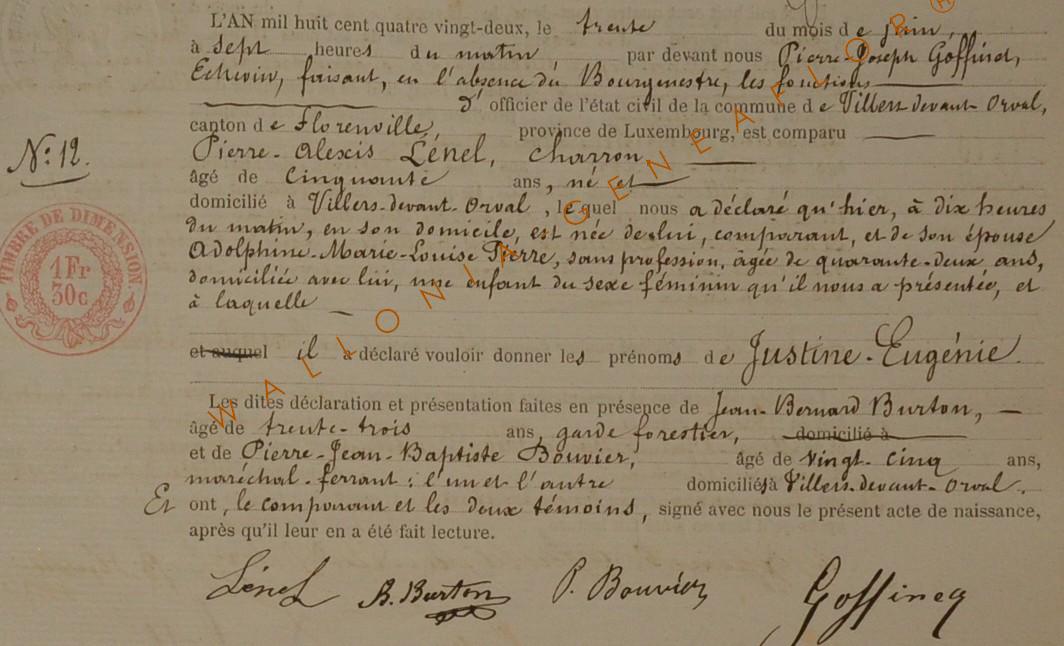 L'AN mil huit cent quatre vingt-deux, le trente du mois de juin,
à sept heures du matin par devant nous Pierre-Joseph Goffinet,
Echevin, faisant, en l'absence du Bourgmestre, les fonctions
D' officier de l'état civil de la commune de Villers-devant-Orval,
canton de Florenville, province de Luxembourg, est comparu
N° 12.
Pierre-Alexis Lénel, charron
âgé de cinquante ans, né et
domicilié à Villers-devant-Orval, lequel nous a déclaré qu'hier, à dix heures
du matin, en son domicile, est née de lui, comparant, et de son épouse
Adolphine-Marie-Louise Pierre, sans profession, âgée de quarante-deux ans,
domiciliée avec lui, une enfant du sexe féminin qu'il nous a présentée, et
à laquelle
TIMBRE DE DIMENSION
1 Fr
30c
et auquel il a déclaré vouloir donner les prénoms de Justine-Eugénie.
Les dites déclaration et présentation faites en présence de Jean-Bernard Burton,
âgé de trente-trois ans, garde forestier, domicilié à
et de Pierre-Jean-Baptiste Bouvier, âgé de vingt-cinq ans,
maréchal-ferrant; l'un et l'autre domiciliés à Villers-devant-Orval.
Et ont, le comparant et les deux témoins, signé avec nous le présent acte de naissance,
après qu'il leur en a été fait lecture.
Lénel B. Burton P. Bouvier
WALLONIA GENEA FLORA